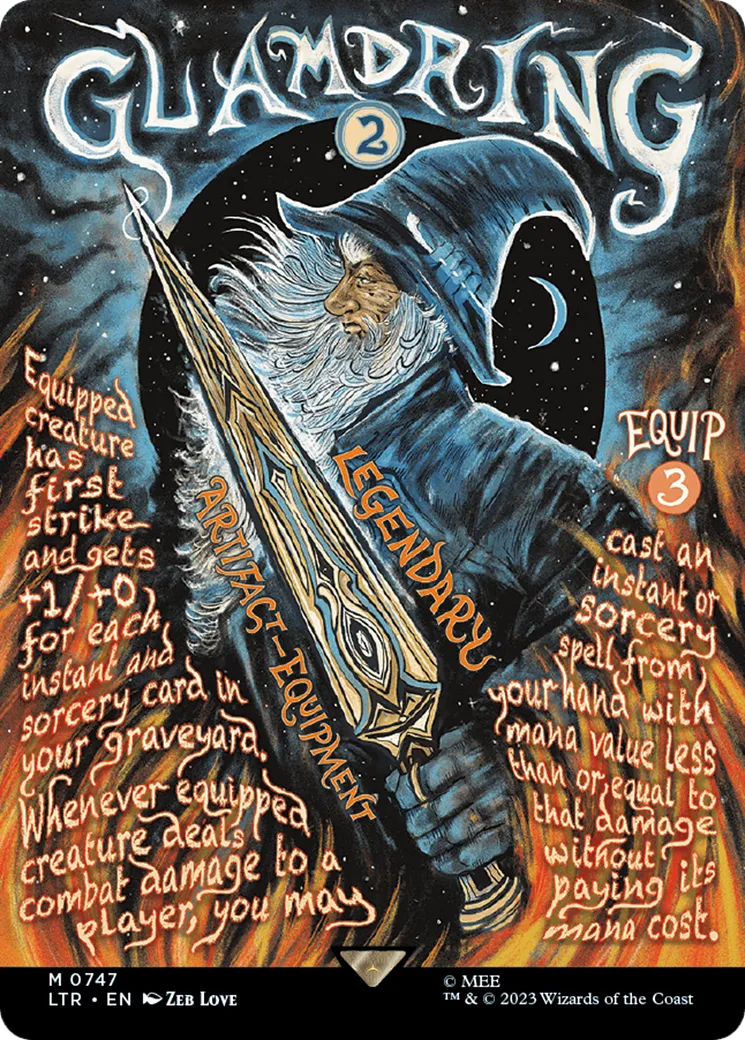 GLAMDRING
2
Equipped
creature
has
first
strike
and gets
+1/+0
for each
instant and
sorcery card in
your graveyard.
Whenever equipped
creature deals
combat damage to a
player, you may
ARTIFACT–EQUIPMENT
LEGENDARY
EQUIP
3
cast an
instant or
sorcery
spell from
your hand with
mana value less
than or equal to
that damage
without
paying its
mana cost.
M 0747
LTR • EN ZEB LOVE
© MEE
™ & © 2023 Wizards of the Coast